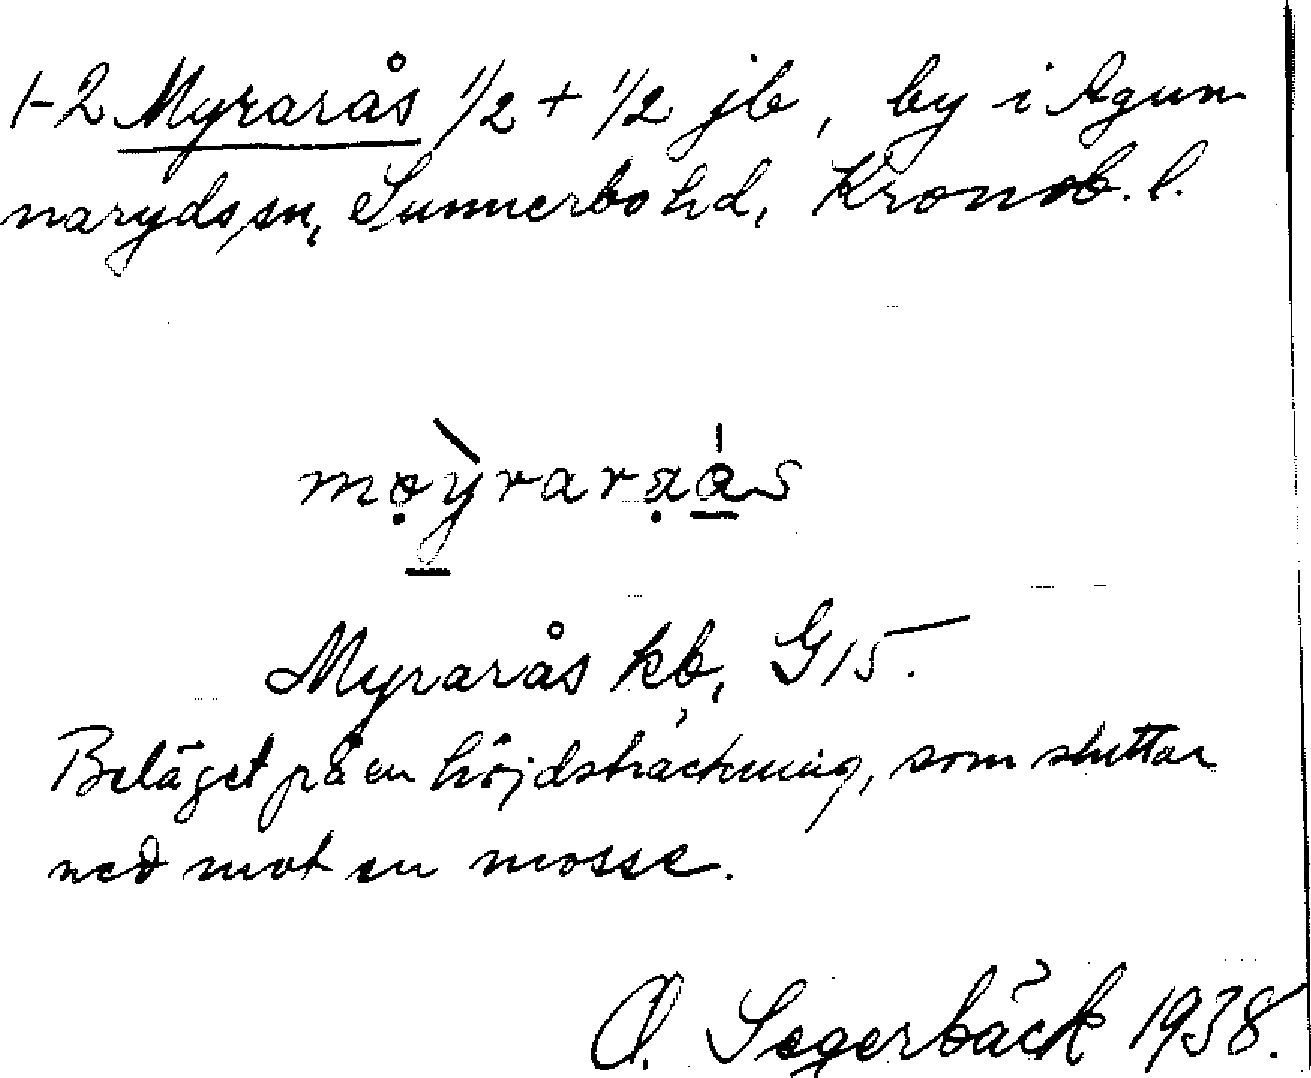 1-2 Myrarås 1/2 + 1/2 jb, by i Agun
naryds sn, Sunnerbo hd, Kronob. l.
mọỳ̱rarạa̱̍s
Myrarås kb, G 15.
Beläget på en höjdsträckning, som sluttar
ned mot en mosse.
O. Segerbäck 1938.